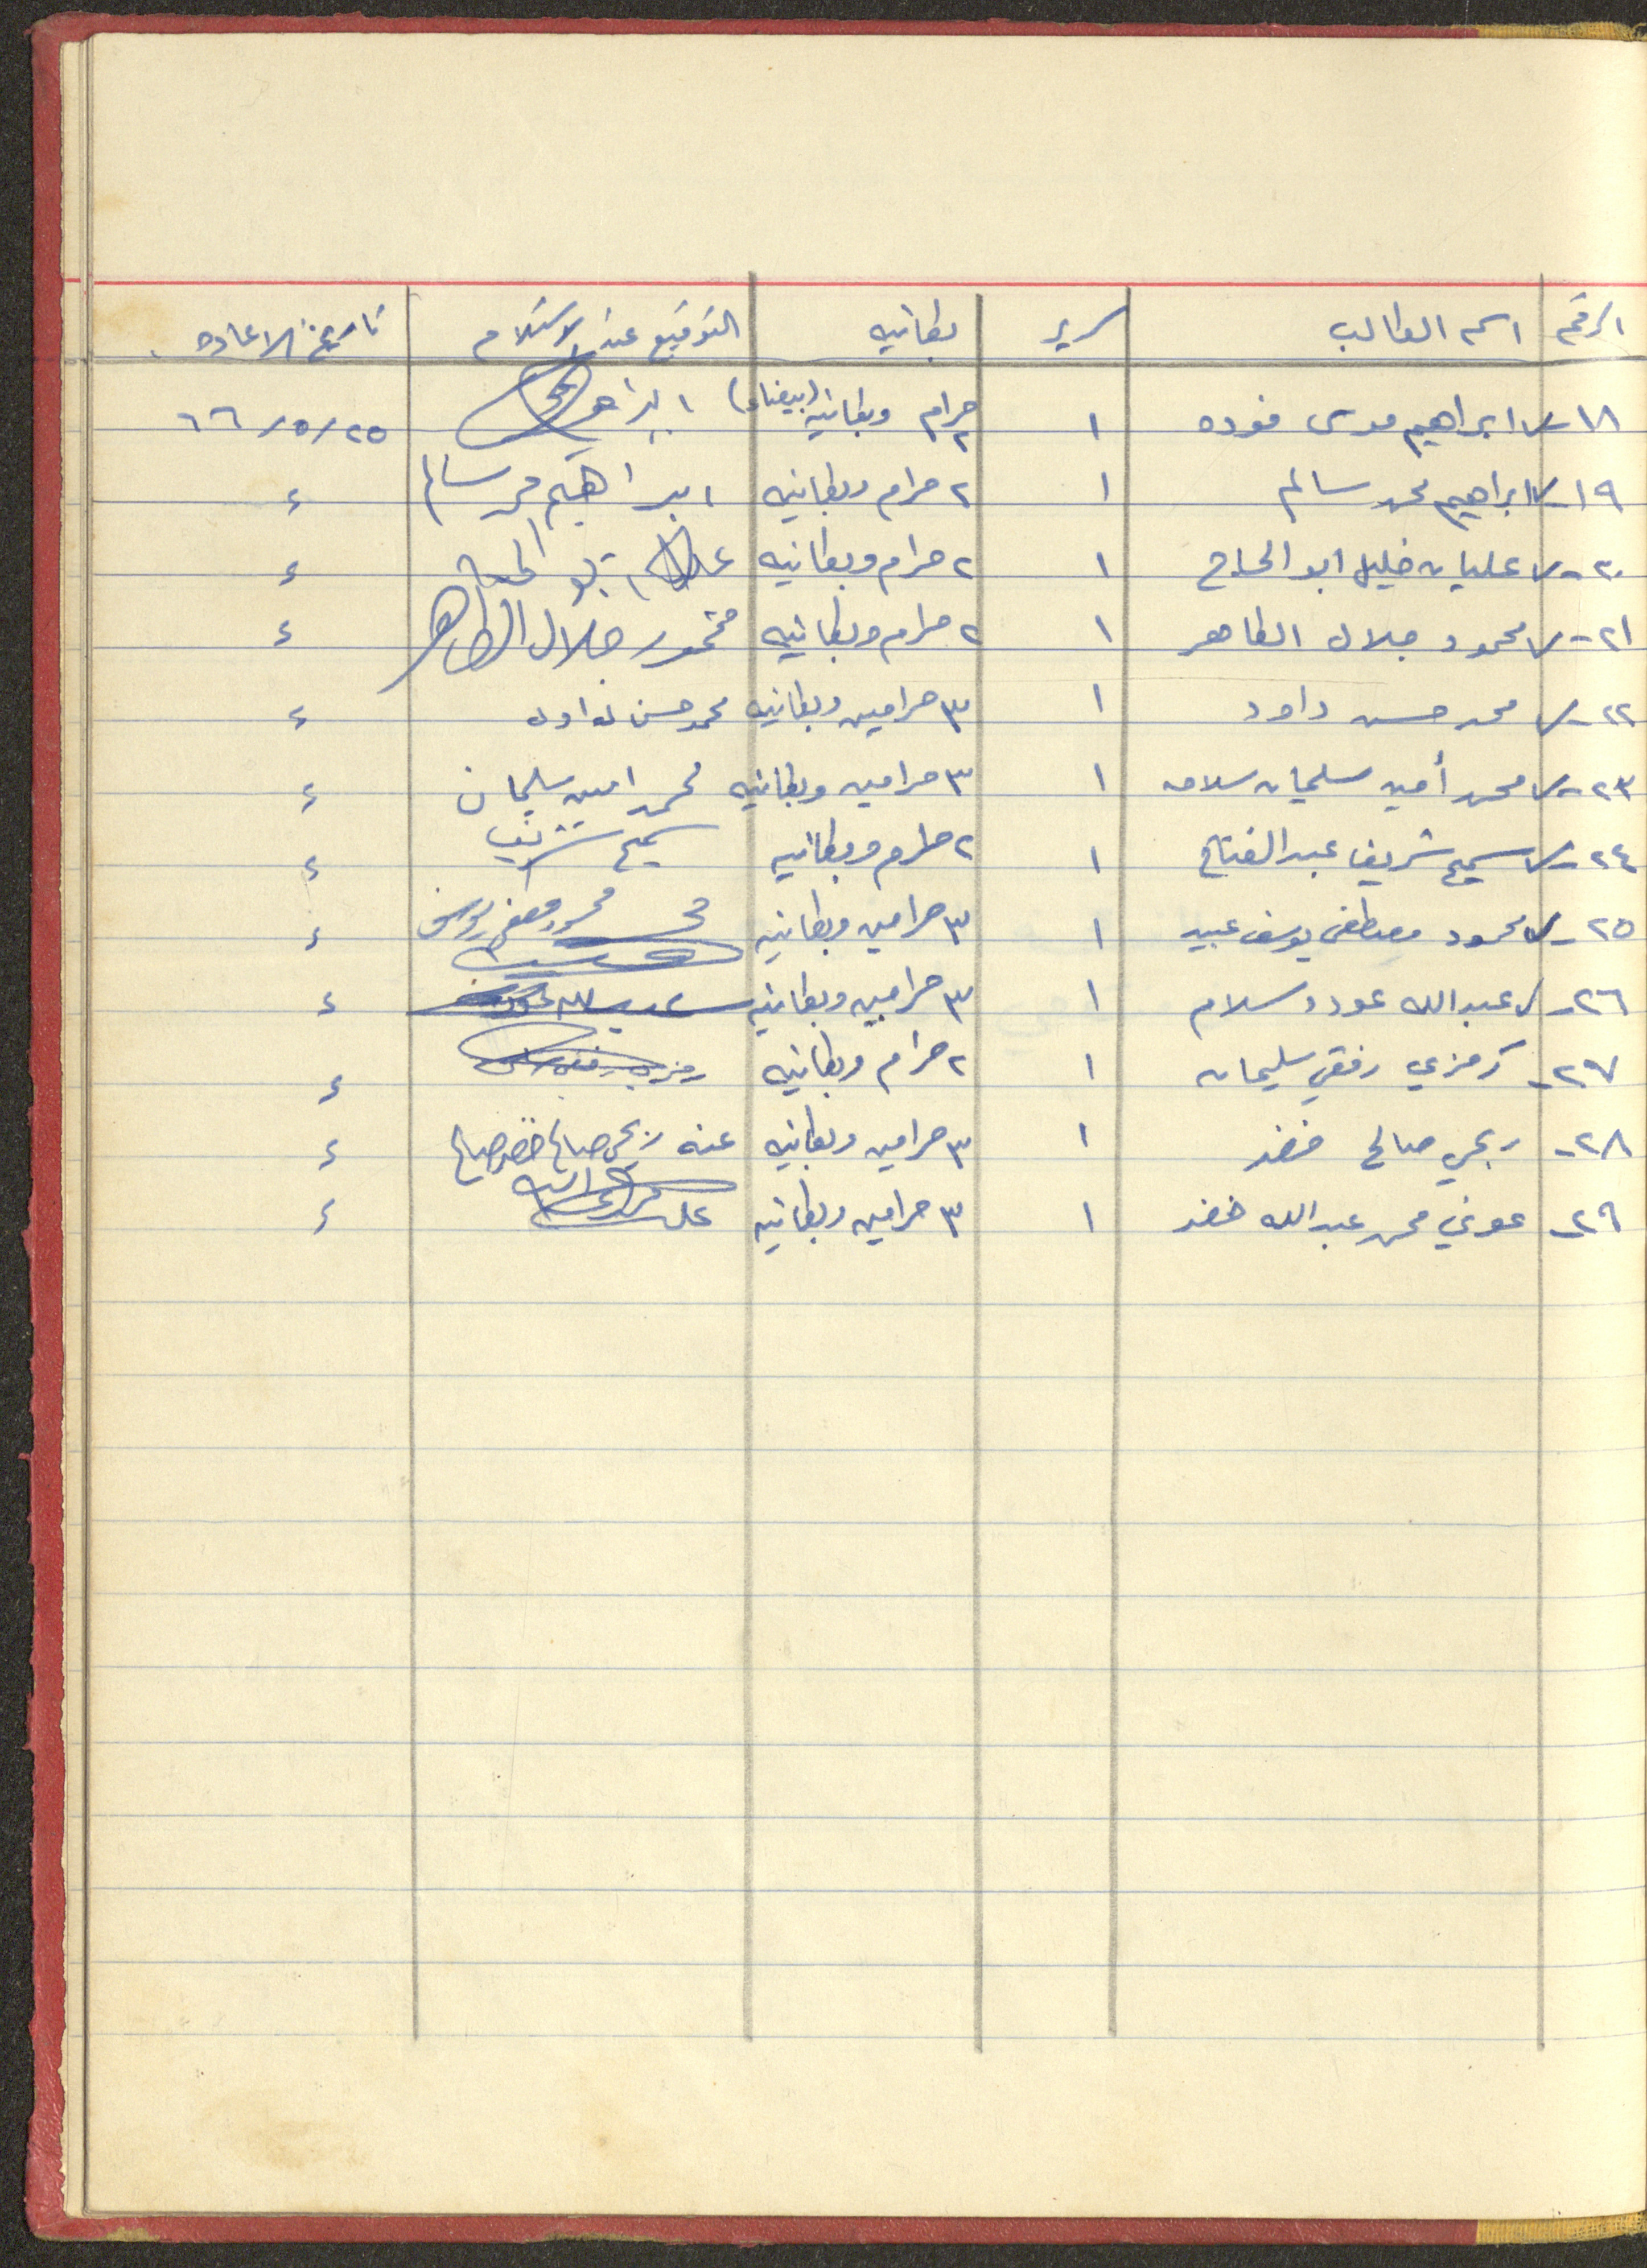 الرقم اسم الطالب سرير بطانيه التوقيع عند الاستلام تاريخ الاعاده
١٨- ابراهيم موسى فوده ١ ٢ حرام وبطانيه (بيضاء) ابراهيم ٢٥/٥/٦٦
١٩- ابراهيم محمد سالم ١ ٢ حرام وبطانيه ابراهيم محمد سالم ״
٢٠- عليان خليل ابو الحاج ١ ٢ حرام وبطانيه ״
٢١- محمود جلال الطاهر ١ ٢ حرام وبطانيه محمود جلال الطاهر ״
٢٢- محمد حسن داود ١ ٣ حرامين وبطانيه محمد حسن داود ״
٢٣- محمد أمين سليمان سلامه ١ ٣ حرامين وبطانيه محمد امين سليمان ״
٢٤- سميح شريف عبد الفتاح ١ ٢ حرام وبطانيه سميح شريف ״
٢٥- محمود مصطفى يوسف عبيد ١ ٣ حرامين وبطانيه محمود مصطفى يوسف ״
٢٦- عبدالله عوده سلام ١ ٣ حرامين وبطانيه ״
٢٧- رمزي رفقي سليمان ١ ٢ حرام وبطانيه ״
٢٨- ربحي صالح خضر ١ ٣ حرامين وبطانيه عنه ربحي صالح خضر صالح ״
٢٩- عوني محمد عبدالله خضر ١ ٣ حرامين وبطانيه ״